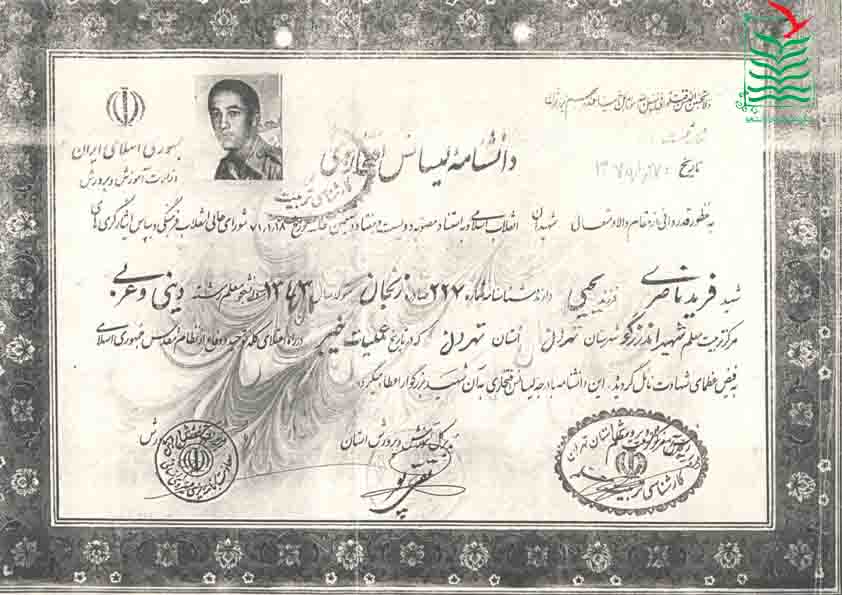 جمهوری اسلامی ایران
وزارت آموزش و پرورش
دانشنامهٔ لیسانس افتخاری
کارشناسی تربیت
تاریخ
به منظور قدردانی از مقام والا و متعالی شهیدان انقلاب اسلامی و به استناد مصوبه دویست و هفتاد و پنجمین جلسه مورخ ۷۱/۱/۱۸ شورای عالی انقلاب فرهنگی و بپاس ایثارگری های
شهید فرید ناصری فرزند یحیی دارنده شناسنامه شماره ۲۲۷ صادره زنجان متولد سال ۱۳۴۳ دانشجو معلم رشته دینی و عربی
مرکز تربیت معلم شهید اندرزگو شهرستان تهران استان تهران که در تاریخ عملیات خیبر در راه اعتلای کلمه توحید و دفاع از نظام مقدس جمهوری اسلامی
به فیض عظمای شهادت نائل گردیدند. این دانشنامه با درجه لیسانس افتخاری به آن شهید بزرگوار اعطا میگردد
مدیر کل آموزش و پرورش استان
استان تهران
کارشناسی تربیت